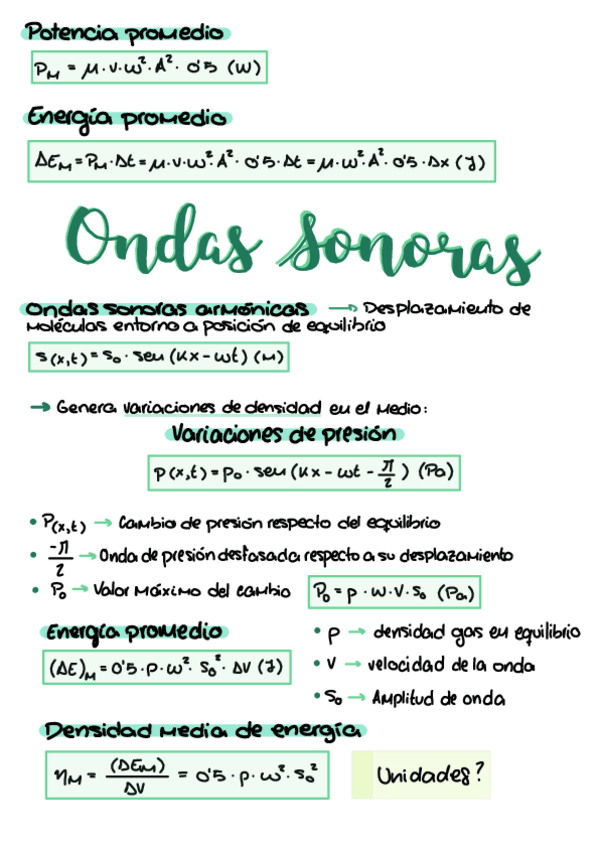 Potencia promedio
P_M = μ·v·ω²·A²· 0'5 (W)
Energía promedio
ΔE_M = P_M·Δt = μ·v·ω²·A²· 0'5·Δt = μ·ω²·A²· 0'5·Δx (J)
Ondas Sonoras
Ondas sonoras armónicas → Desplazamiento de
moléculas entorno a posición de equilibrio
s(x,t) = s₀ · sen (kx - ωt) (m)
→ Genera variaciones de densidad en el medio:
Variaciones de presión
p(x,t) = p₀ · sen (kx - ωt - π/2) (Pa)
• P(x,t) → Cambio de presión respecto del equilibrio
• -π/2 → Onda de presión desfasada respecto a su desplazamiento
• P₀ → Valor máximo del cambio P₀ = ρ · ω · v · s₀ (Pa)
Energía promedio
(ΔE)_M = 0'5 · ρ · ω² · s₀² · ΔV (J)
• ρ → densidad gas en equilibrio
• v → velocidad de la onda
• s₀ → Amplitud de onda
Densidad media de energía
η_M = (ΔE_M)/ΔV = 0'5 · ρ · ω² · s₀²
Unidades?